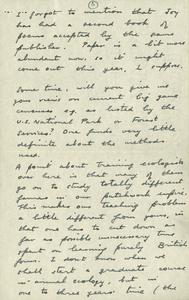 I forgot to mention that Joy
has had a second book of
poems accepted by the same
publisher. Paper is a bit more
abundant now, so it might
come out this year, I suppose.
Some time, will you give me
your views on current big game
censuses eg. as listed by the
U.S. National Park or Forest
Services? One finds very little
definite about the methods
used.
A point about training ecologists
over here is that many of them
go on to study totally different
faunas in our patchwork empire.
This makes our teaching problem
a little different from yours, in
that one has to cut down as
far as possible unnecessary time
spent on learning purely British
forms. I don't know when we
shall start a graduate course
in animal ecology, but in
one to three years' time (the